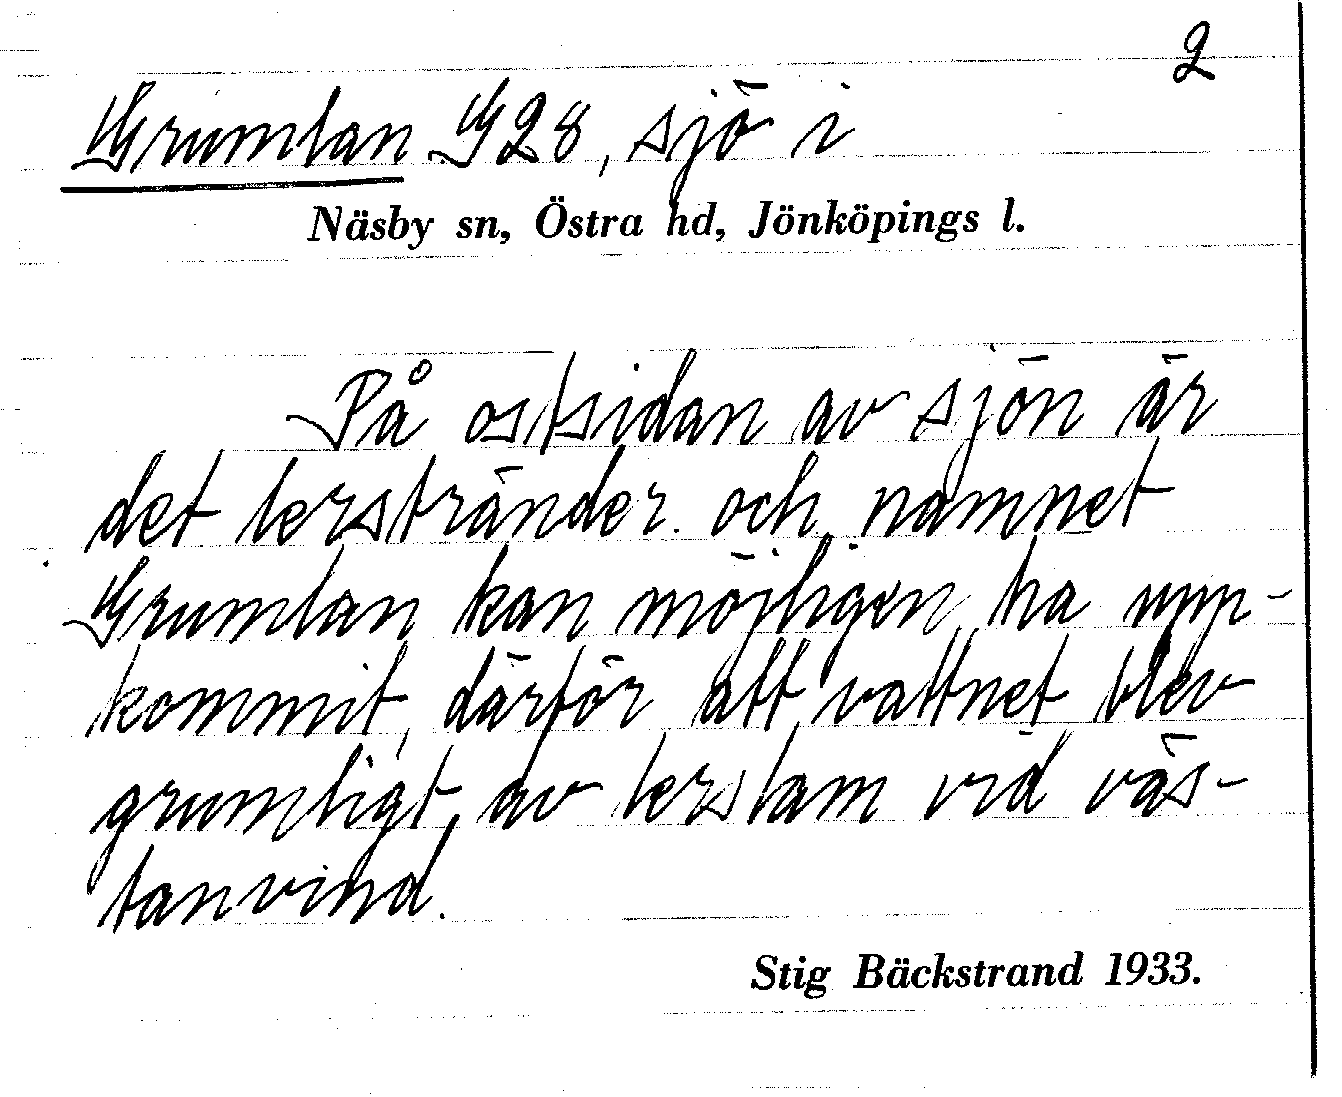 2
Grumlan G28, sjö i
Näsby sn, Östra hd, Jönköpings l.
På ostsidan av sjön är
det lerstränder och namnet
Grumlan kan möjligen ha upp-
kommit, därför att vattnet blev
grumligt av lerslam vid väs-
tanvind.
Stig Bäckstrand 1933.